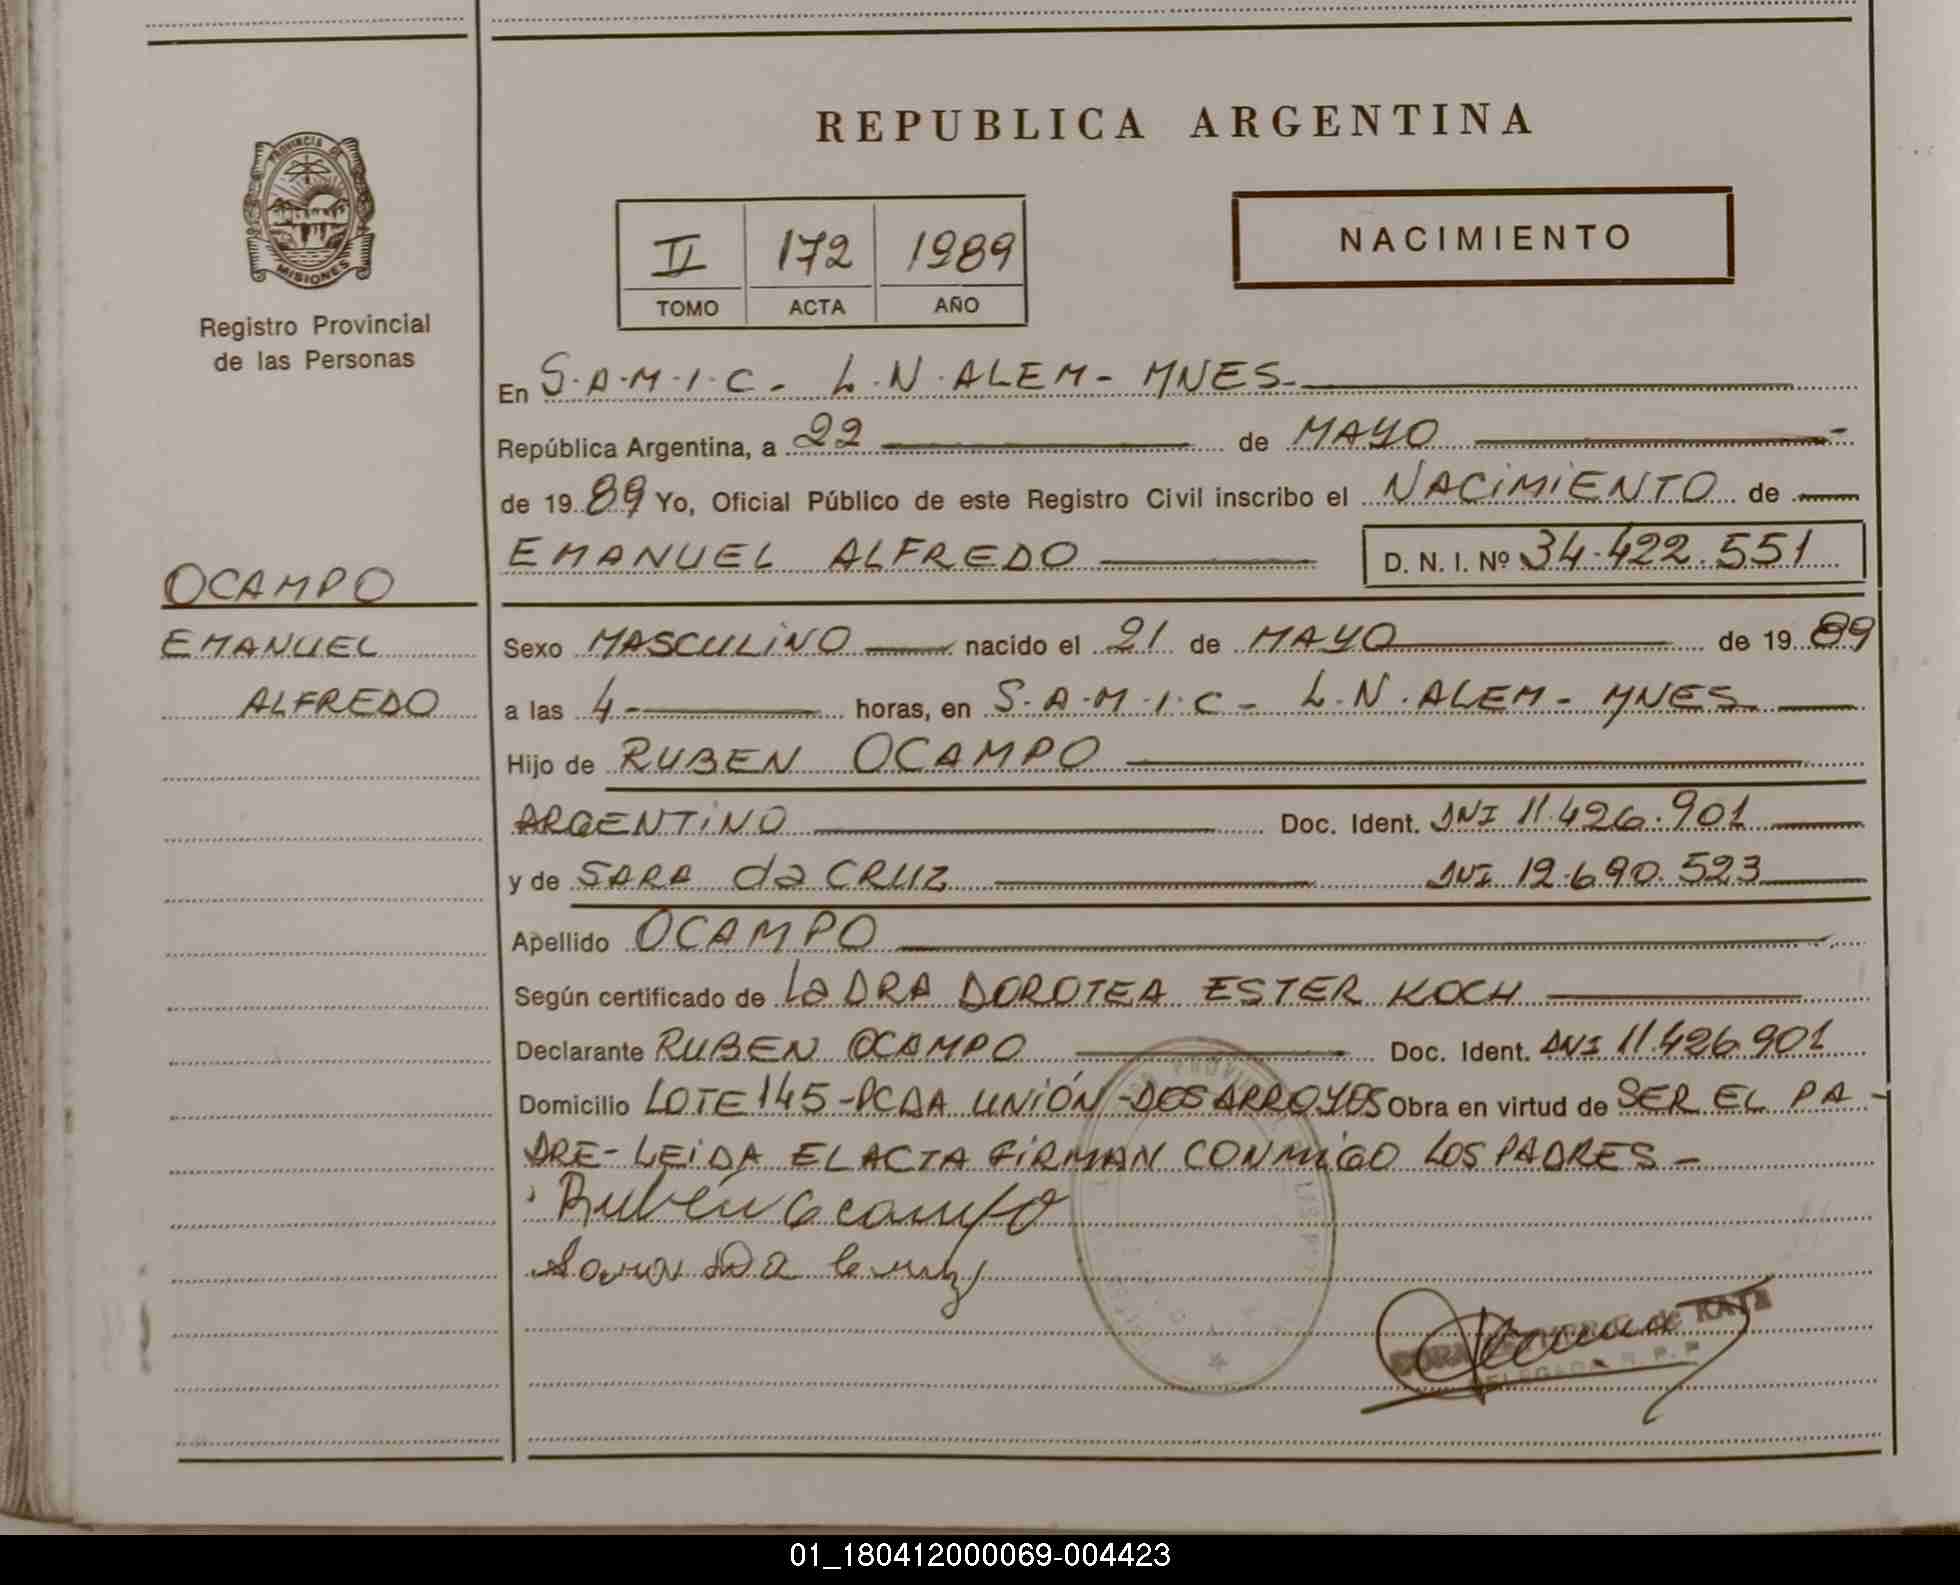 REPUBLICA ARGENTINA
PROVINCIA DE
MISIONES
Registro Provincial
de las Personas
II 172 1989
TOMO ACTA AÑO
NACIMIENTO
En S.A.M.I.C- L.N.ALEM- MNES-
República Argentina, a 22 de MAYO
de 1989 Yo, Oficial Público de este Registro Civil inscribo el NACIMIENTO de
EMANUEL ALFREDO D. N. I. Nº 34.422.551
OCAMPO
EMANUEL
ALFREDO
Sexo MASCULINO nacido el 21 de MAYO de 1989
a las 4- horas, en S.A.M.I.C- L.N.ALEM- MNES
Hijo de RUBEN OCAMPO
ARGENTINO Doc. Ident. DNI 11.426.901
y de SARA da CRUZ DNI 12.690.523
Apellido OCAMPO
Según certificado de La DRA DOROTEA ESTER KOCH
Declarante RUBEN OCAMPO Doc. Ident. DNI 11.426.901
Domicilio LOTE 145-PCDA UNIÓN-DOS ARROYOS Obra en virtud de SER EL PA-
DRE- LEIDA EL ACTA FIRMAN CONMIGO LOS PADRES-
Rubén Ocampo
Sara Da Cruz
de KATZ
DELEGADA R. P. P.
01_180412000069-004423